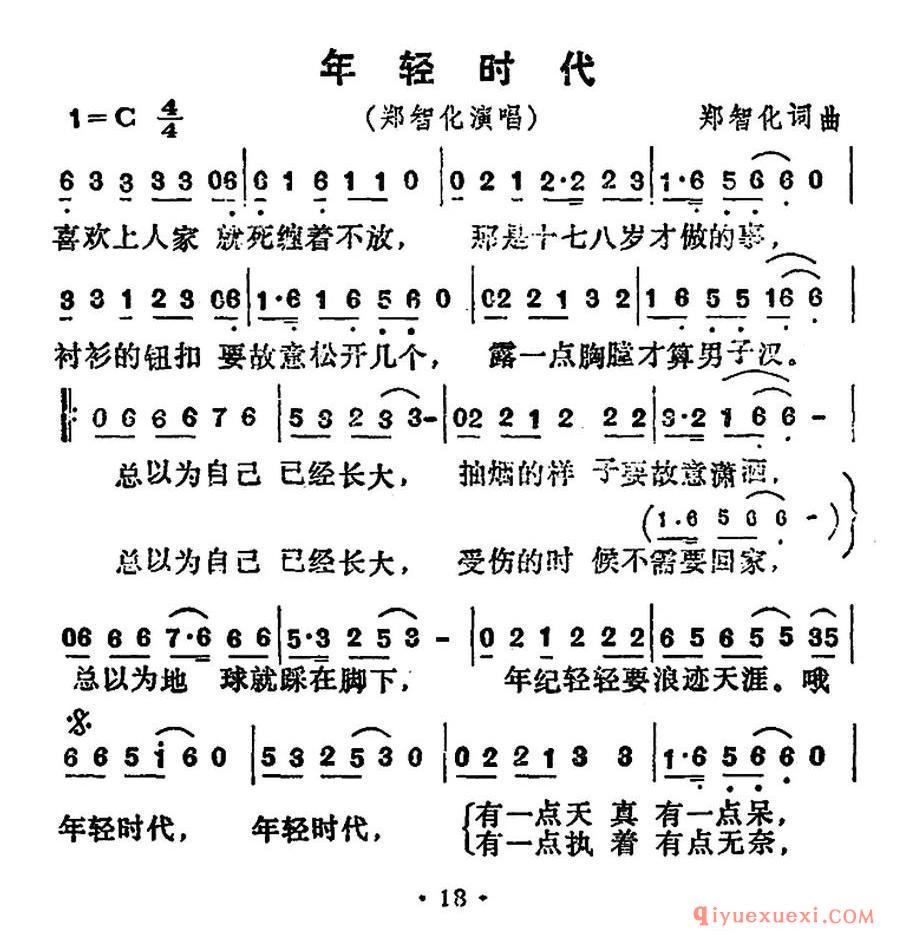 年轻时代
1=C 4/4 （郑智化演唱） 郑智化词曲
6 3 3 3 3 06 | 6 1 6 1 1 0 | 0 2 1 2·2 2 3 | 1·6 5 6 6 0 |
喜欢上人家 就死缠着不放， 那是十七八岁才做的事，
3 3 1 2 3 06 | 1·6 1 6 5 6 0 | 02 2 1 3 2 | 1 6 5 5 16 6 |
衬衫的钮扣 要故意松开几个， 露一点胸膛才算男子汉。
‖: 0 6 6 6 7 6 | 5 3 2 3 3 - | 02 2 1 2 2 2 | 3·2 1 6 6 - |
总以为自己 已经长大， 抽烟的样 子要故意潇洒，
(1·6 5 6 6 -)
总以为自己 已经长大， 受伤的时 候不需要回家，
06 6 6 7·6 6 6 | 5·3 2 5 3 - | 0 2 1 2 2 2 2 | 6 5 6 5 5 35 |
总以为地 球就踩在脚下， 年纪轻轻要浪迹天涯。哦
6 6 5 i 6 0 | 5 3 2 5 3 0 | 0 2 2 1 3 3 | 1·6 5 6 6 0 |
年轻时代， 年轻时代， 有一点天 真 有一点呆，
有一点执 着 有点无奈，
·18·
qiyuexuexi.com